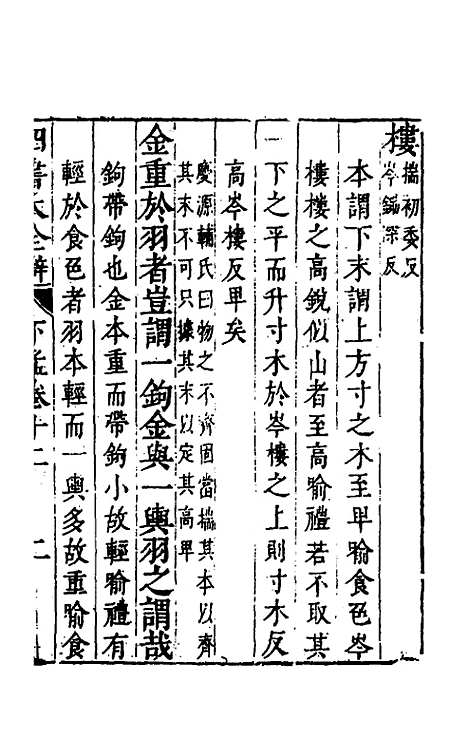 樓揣初委反
岑鋤深反
本謂下末謂上方寸之木至卑喻食色岑
樓樓之高銳似山者至高喻禮若不取其
下之平而升寸木於岑樓之上則寸木反
高岑樓反卑矣
慶源輔氏曰物之不齊固當揣其本以齊
其末不可只據其末以定其高卑
金重於羽者豈謂一鉤金與一輿羽之謂哉
鉤帶鉤也金本重而帶鉤小故輕喻禮有
輕於食色者羽本輕而一輿多故重喻食
四書大全辯 下孟卷十二 二